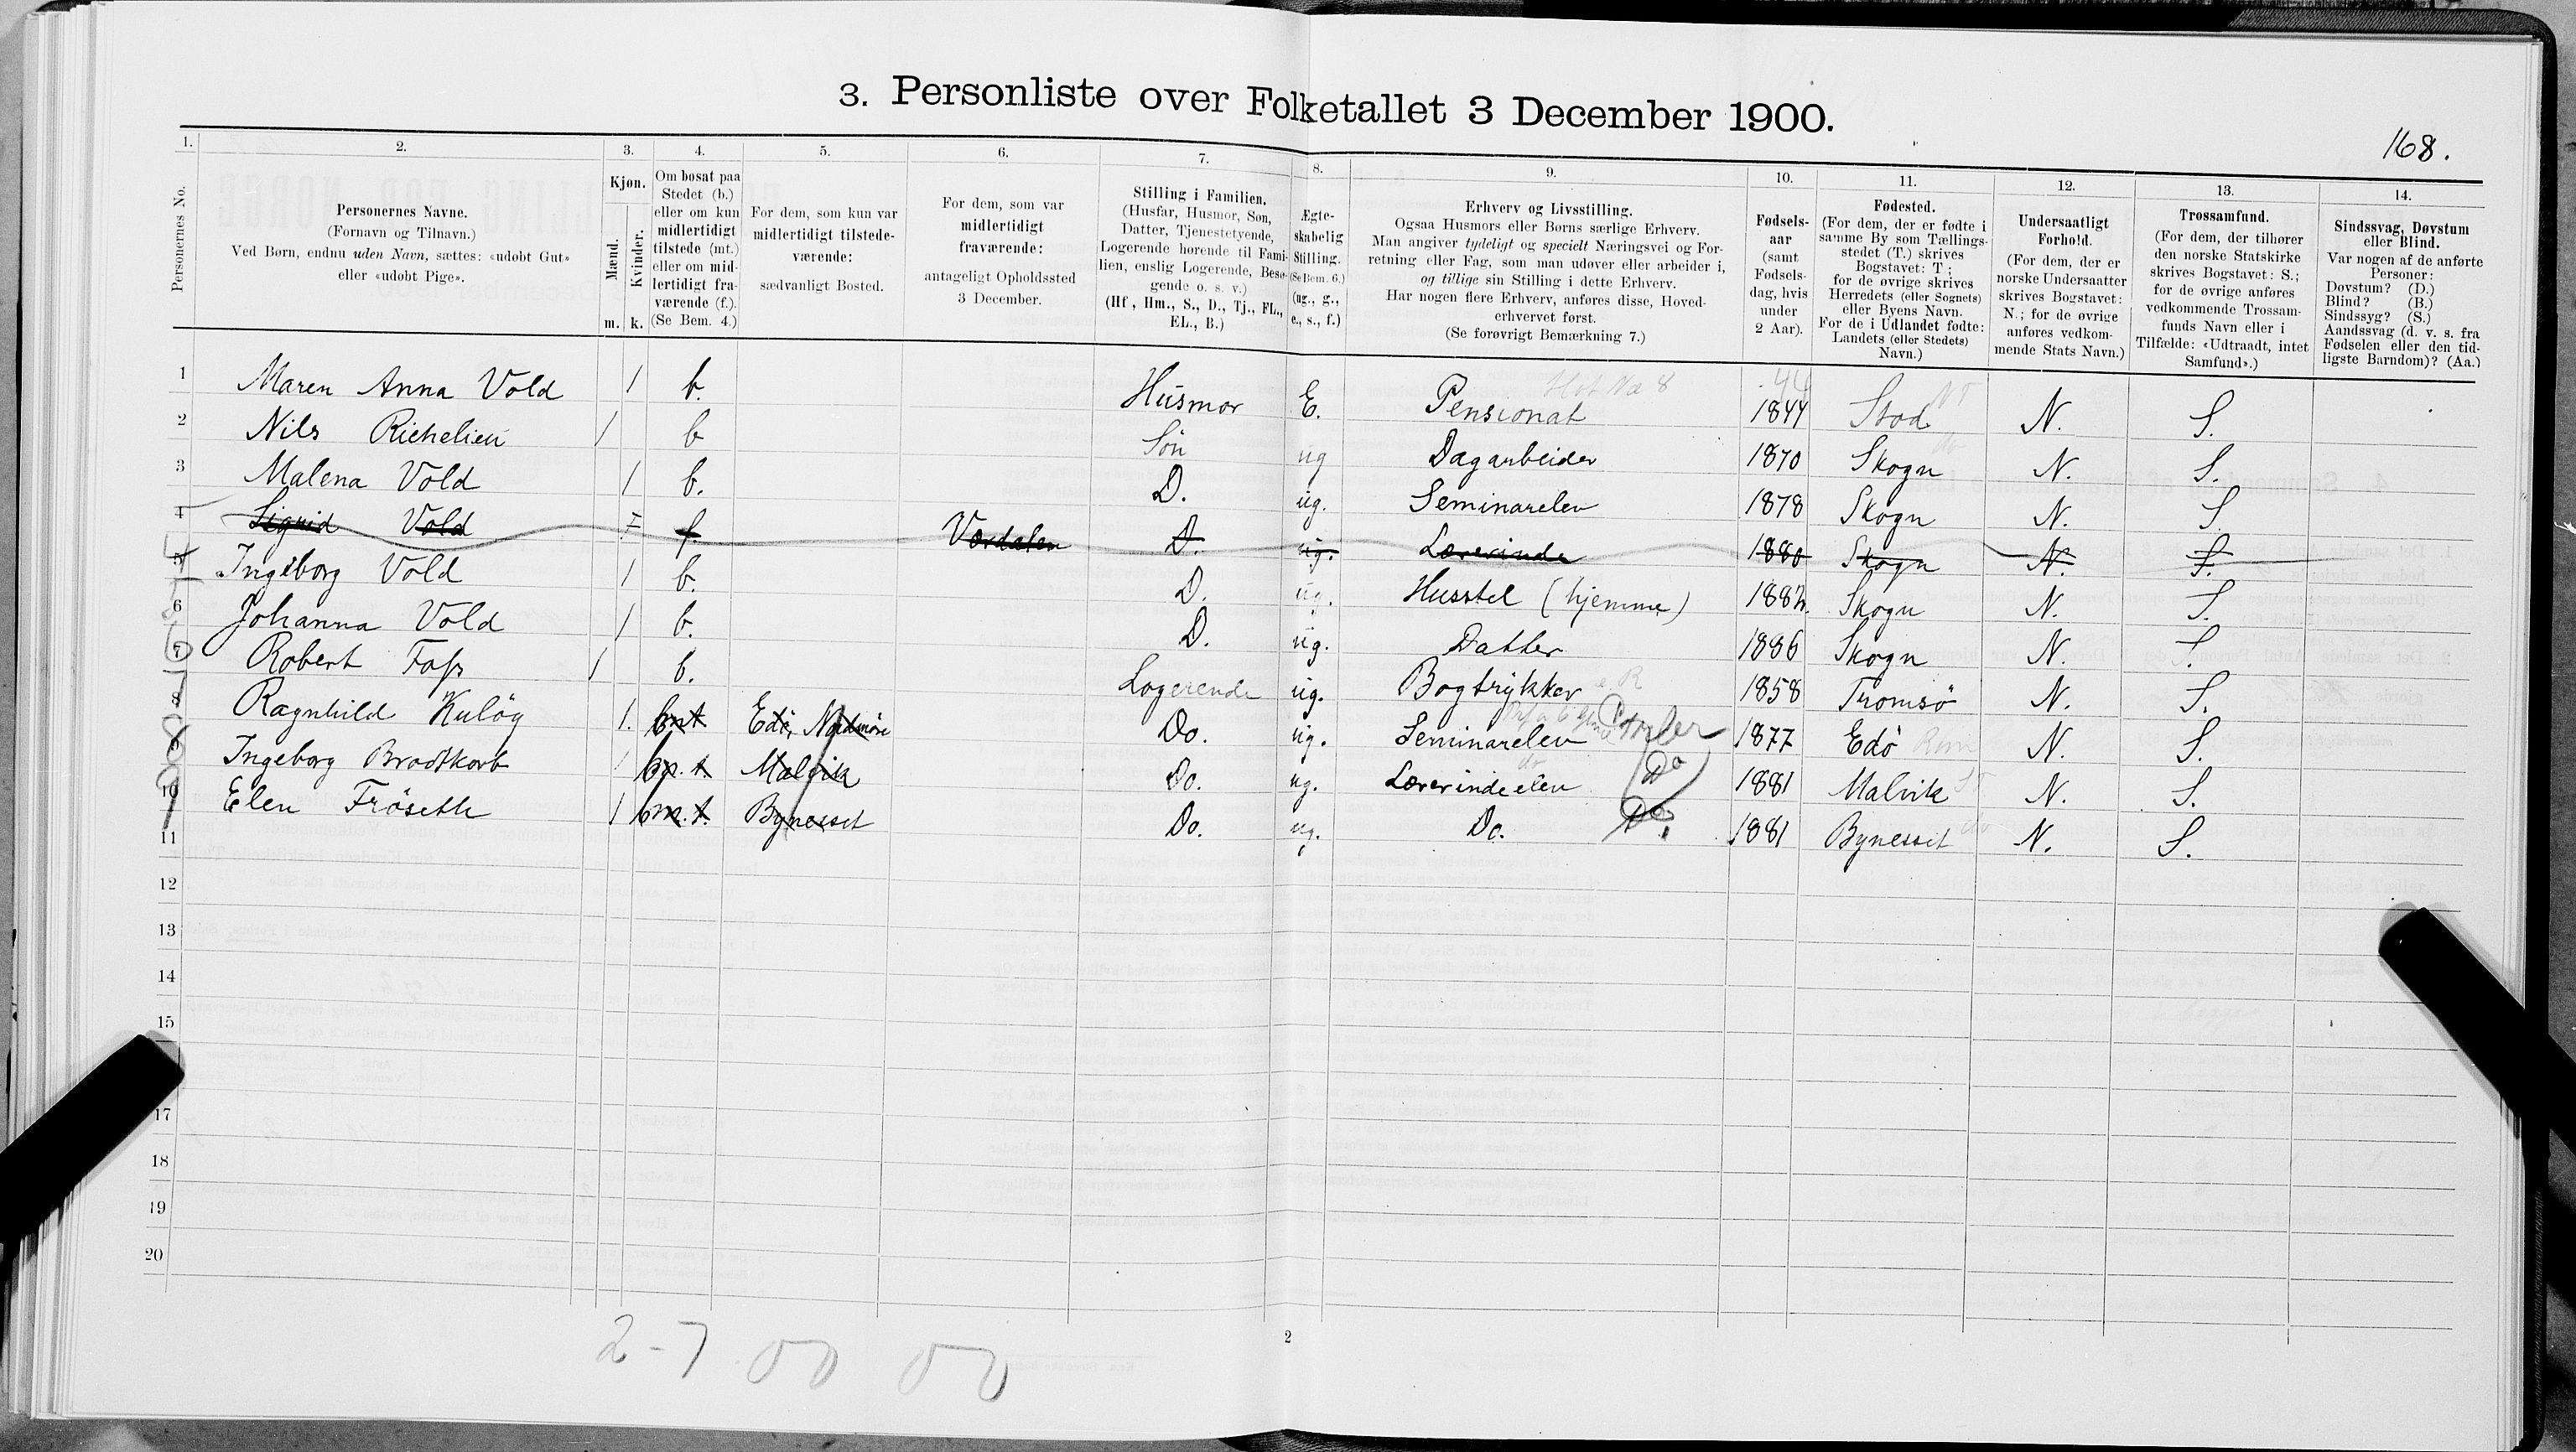 3. Personliste over Folketallet 3 December 1900.
168.
1. 2. 3. 4. 5. 6. 7. 8. 9. 10. 11. 12. 13. 14.
Personernes No.
Personernes Navne.
(Fornavn og Tilnavn.)
Ved Børn, endnu uden Navn, sættes: «udøbt Gut»
eller «udøbt Pige».
Kjøn.
Mænd.
Kvinder.
m. k.
Om bosat paa
Stedet (b.)
eller om kun
midlertidigt
tilstede (mt.)
eller om mid-
lertidigt fra-
værende (f.).
(Se Bem. 4.)
For dem, som kun var
midlertidigt tilstede-
værende:
sædvanligt Bosted.
For dem, som var
midlertidigt
fraværende:
antageligt Opholdssted
3 December.
Stilling i Familien.
(Husfar, Husmor, Søn,
Datter, Tjenestetyende,
Logerende hørende til Fami-
lien, enslig Logerende, Besø-
gende o. s. v.)
(Hf., Hm., S., D., Tj., FL.,
EL., B.)
Ægte-
skabelig
Stilling.
(Se Bem. 6.)
(ug., g.,
e., s., f.)
Erhverv og Livsstilling.
Ogsaa Husmors eller Børns særlige Erhverv.
Man angiver tydeligt og specielt Næringsvei og For-
retning eller Fag, som man udøver eller arbeider i,
og tillige sin Stilling i dette Erhverv.
Har nogen flere Erhverv, anføres disse, Hoved-
erhvervet først.
(Se forøvrigt Bemærkning 7.)
Fødsels-
aar
(samt
Fødsels-
dag, hvis
under
2 Aar).
Fødested.
(For dem, der er fødte i
samme By som Tællings-
stedet (T.) skrives
Bogstavet: T;
for de øvrige skrives
Herredets (eller Sognets)
eller Byens Navn.
For de i Udlandet fødte:
Landets (eller Stedets)
Navn.)
Undersaatligt
Forhold.
(For dem, der er
norske Undersaatter
skrives Bogstavet:
N.; for de øvrige
anføres vedkom-
mende Stats Navn.)
Trossamfund.
(For dem, der tilhører
den norske Statskirke
skrives Bogstavet: S.;
for de øvrige anføres
vedkommende Trossam-
funds Navn eller i
Tilfælde: «Udtraadt, intet
Samfund».)
Sindssvag, Døvstum
eller Blind.
Var nogen af de anførte
Personer:
Døvstum? (D.)
Blind? (B.)
Sindssyg? (S.)
Aandssvag (d. v. s. fra
Fødselen eller den tid-
ligste Barndom)? (Aa.)
1 Maren Anna Vold 1 b. Husmor E. Pensionat 1844 Stod N. S.
2 Nils Richelieu 1 b Søn ug Dagarbeider 1870 Skogn N. S.
3 Malena Vold 1 b. D. ug. Seminarelev 1878 Skogn N. S.
4 Sigrid Vold 1 f. Værdalen D. ug. Lærerinde 1880 Skogn N. S.
5 Ingeborg Vold 1 b. D. ug. Husstel (hjemme) 1882. Skogn N. S.
6 Johanna Vold 1 b. D. ug. Datter 1886 Skogn N. S.
7 Robert Foss 1 b. Logerende ug. Bogtrykker 1858 Tromsö N. S.
8 Ragnhild Kulög 1. mt Edö, Nordmöre Do. ug. Seminarelev 1877 Edö N. S.
9 Ingeborg Brodtkorb 1 m. t. Malvik Do. ug. Lærerindeelev Do 1881 Malvik N. S.
10 Elen Fröseth 1 m. t. Bynesset Do. ug. Do. Do. 1881 Bynesset N. S.
11
12
13
14
15
17
18
19
20
2-7 00 00
2